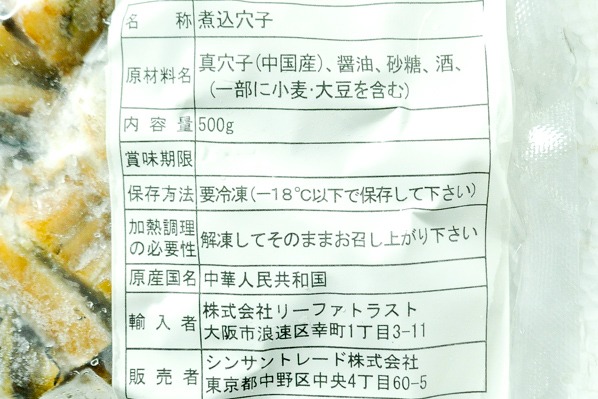 名称 煮込穴子
原材料名 真穴子(中国産)、醤油、砂糖、酒、
(一部に小麦・大豆を含む)
内容量 500g
賞味期限
保存方法 要冷凍(－18℃以下で保存して下さい)
加熱調理
の必要性 解凍してそのままお召し上がり下さい
原産国名 中華人民共和国
輸入者 株式会社リーファトラスト
大阪市浪速区幸町1丁目3-11
販売者 シンサントレード株式会社
東京都中野区中央4丁目60-5